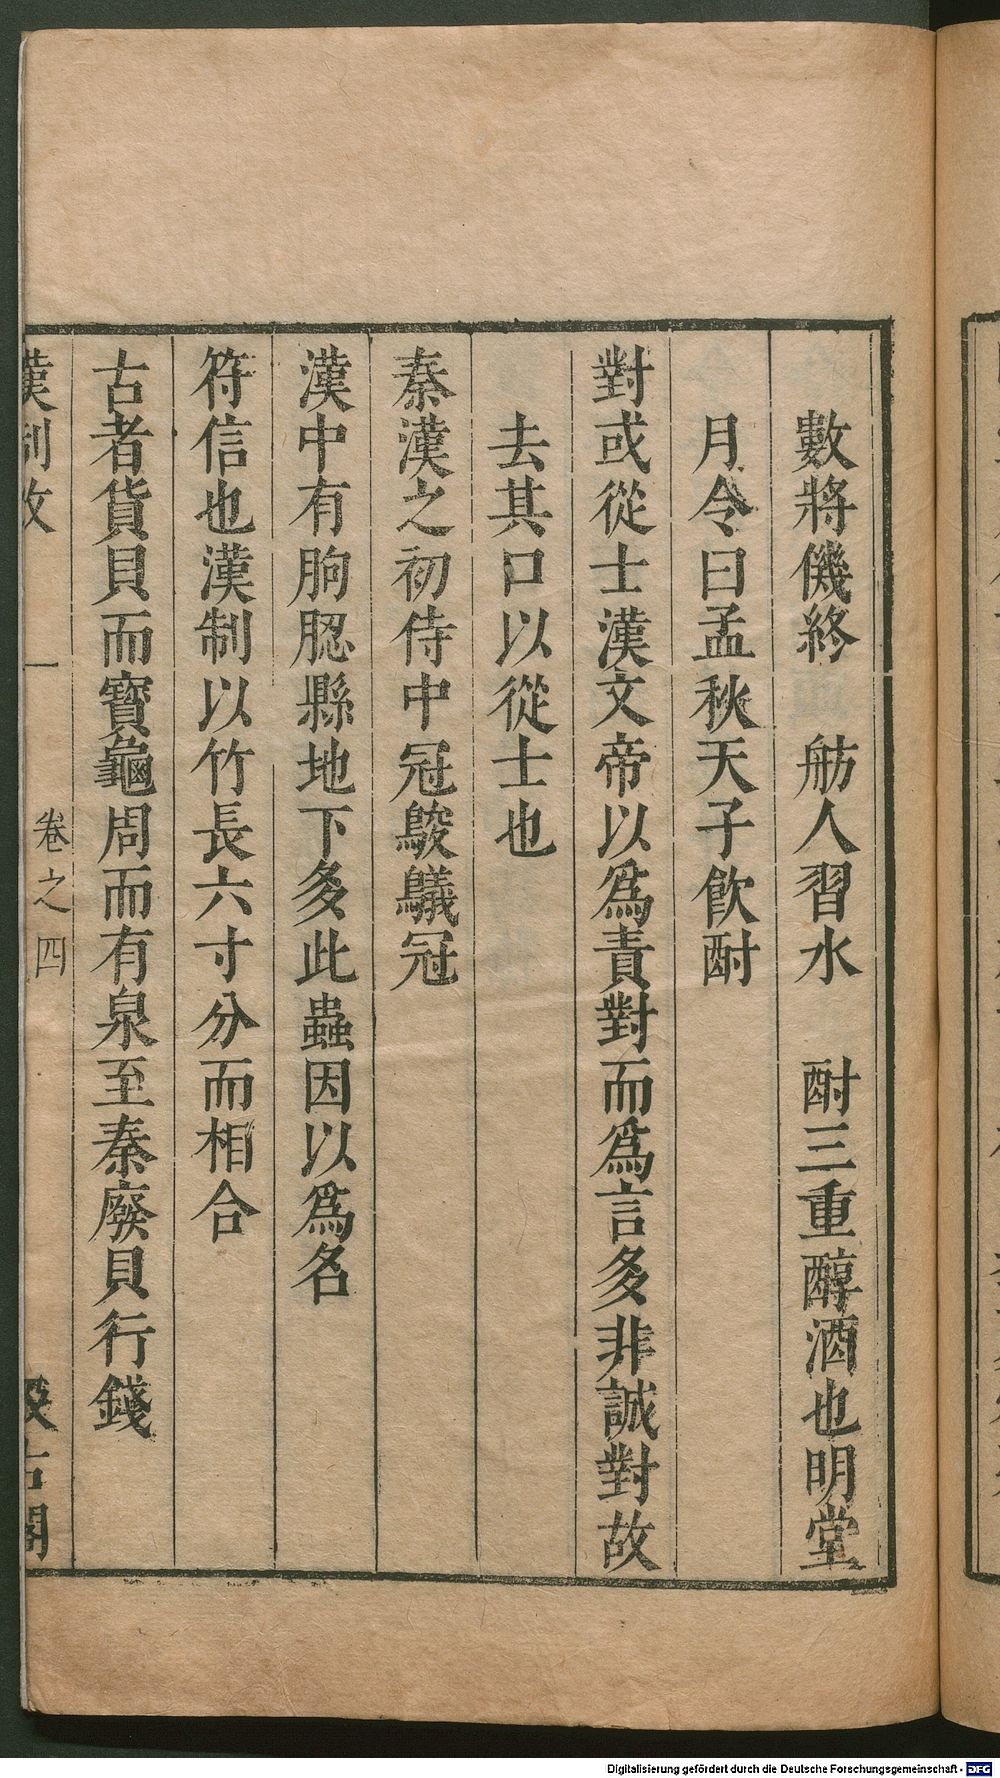 數將僟終　舫人習水　酎三重醇酒也明堂
月令曰孟秋天子飮酎
對或從士漢文帝以爲責對而爲言多非誠對故
去其口以從士也
秦漢之初侍中冠鵔鸃冠
漢中有朐䏰縣地下多此蟲因以爲名
符信也漢制以竹長六寸分而相合
古者貨貝而寶龜周而有泉至秦廢貝行錢
漢制攷
一
卷之四
汲古閣
Digitalisierung gefördert durch die Deutsche Forschungsgemeinschaft - DFG